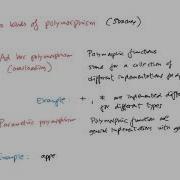 kinds of polymorphism
Ad hoc polymorphism
(overloading)
Polymorphic functions
some for a collection of
different implementations for
Example: + , * are implemented
for different types
Parametric polymorphism
Polymorphic function are
general implementations with
Example: appe